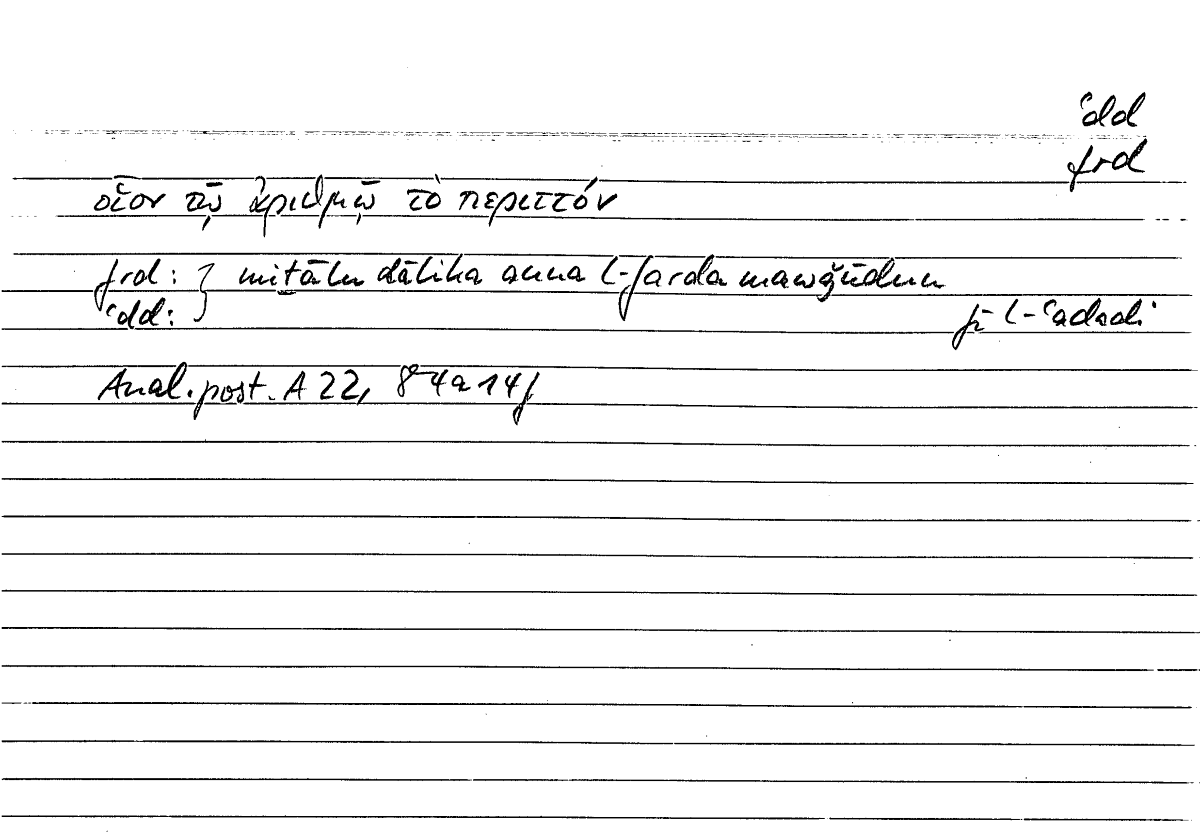 ʿdd
frd
οἷον τῷ ἀριθμῷ τὸ περιττόν
frd: } miṯālu ḏālika anna l-farda mawǧūdun
ʿdd: fī l-ʿadadi
Anal. post. A 22, 84a14f